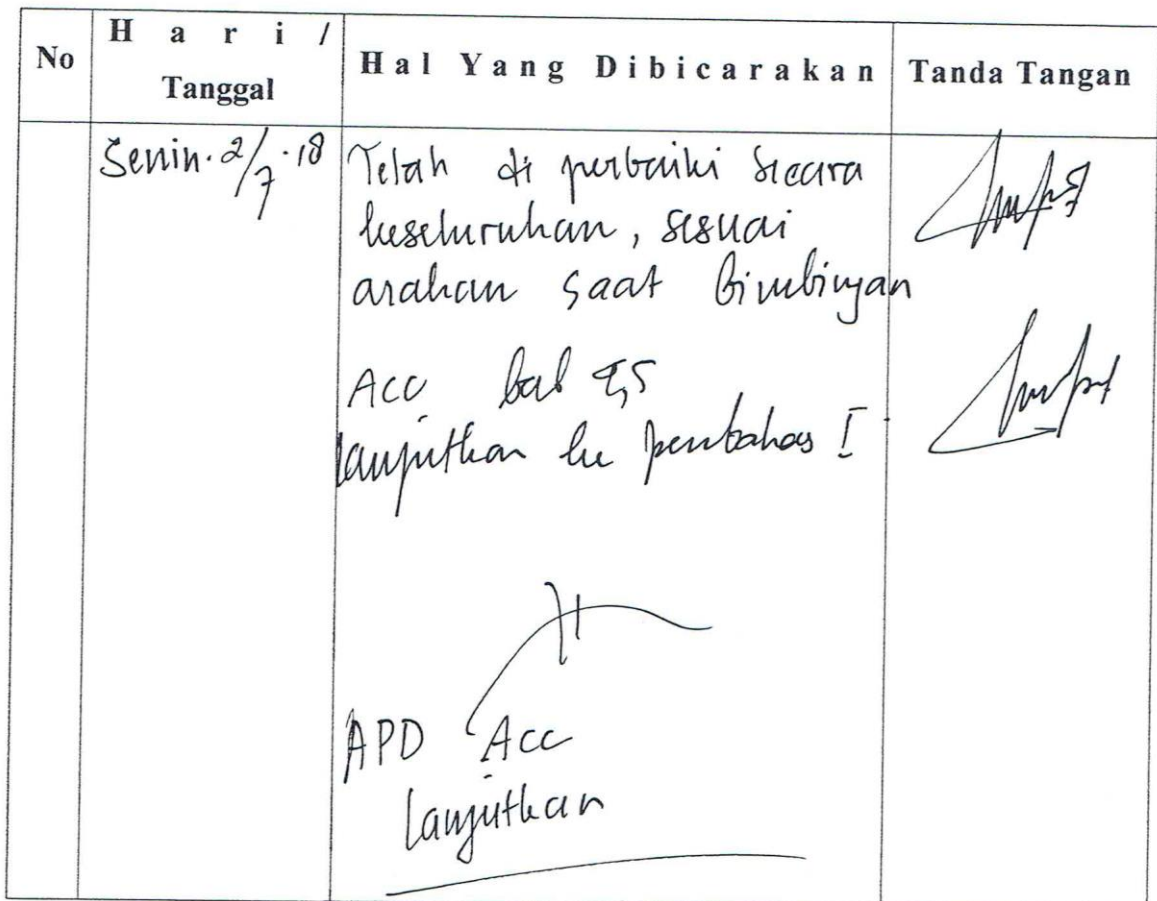 No
H a r i /
Tanggal
Hal Yang Dibicarakan
Tanda Tangan
Senin. 2/7.18
Telah di perbaiki secara
keseluruhan, sesuai
arahan saat bimbingan
Acc bab 4,5
lanjutkan ke pembahas I
APD Acc
lanjutkan